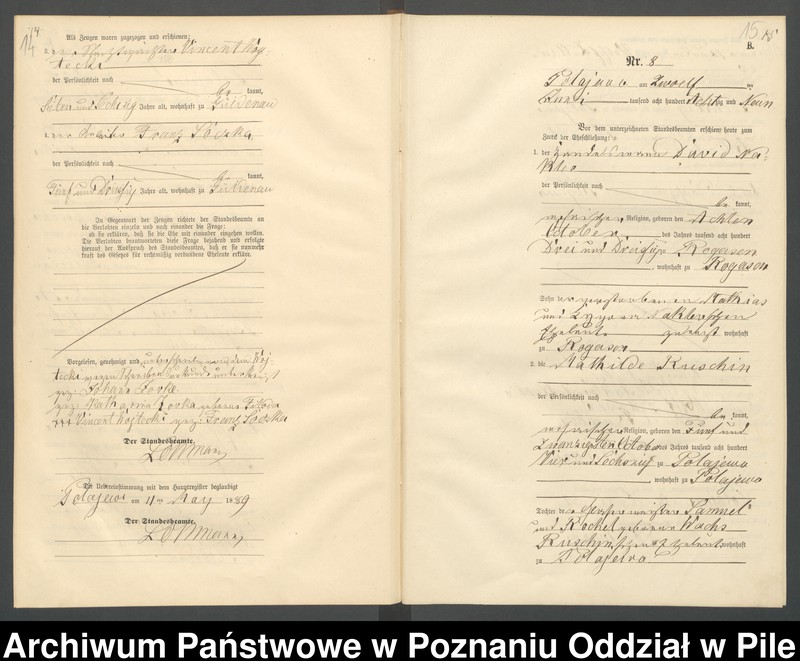 14
14
Als Zeugen waren zugezogen und erschienen:
2. der Vincent Woj-
tecki
der Persönlichkeit nach
be kannt,
Sieben und Jahre alt, wohnhaft zu Güldenau
4. der Franz Sodska
der Persönlichkeit nach
be kannt,
Fünf und Dreißig Jahre alt, wohnhaft zu Güldenau
In Gegenwart der Zeugen richtete der Standesbeamte an
die Verlobten einzeln und nach einander die Frage:
ob sie erklären, daß sie die Ehe mit einander eingehen wollen.
Die Verlobten beantworteten diese Frage bejahend und erfolgte
hierauf der Ausspruch des Standesbeamten, daß er sie nunmehr
kraft des Gesetzes für rechtmäßig verbundene Eheleute erkläre.
Vorgelesen, genehmigt und unterschrieben von dem Woj-
tecki wegen
gez. Johann
gez. Katharina geborene
Vincent Wojtecki gez. Franz Sodska
Der Standesbeamte.
Die Uebereinstimmung mit dem Hauptregister beglaubigt
Polajewo am 11ten May 1889
Der Standesbeamte.
15
15
B.
Nr. 8
Polajewo am Zwoelf ten
Juni tausend acht hundert Achtzig und Neun
Vor dem unterzeichneten Standesbeamten erschienen heute zum
Zweck der Eheschließung:
1. der Handelsmann David Na-
kler
der Persönlichkeit nach
be kannt,
mosaischer Religion, geboren den Achten
October des Jahres tausend acht hundert
Drei und Dreißig zu Rogasen
, wohnhaft zu Rogasen
Sohn der verstorbenen Mathias
und Naklerschen
Eheleute zuletzt wohnhaft
zu Rogasen
2. die Mathilde Ruschin
der Persönlichkeit nach
be kannt,
mosaischer Religion, geboren den Fünf und
Zwanzigsten October des Jahres tausend acht hundert
Vier und Sechszig zu Polajewo
, wohnhaft zu Polajewo
Tochter des Samuel
und Rochel geborene Wachs
Ruschin'schen Eheleute wohnhaft
zu Polajewo
Archiwum Państwowe w Poznaniu Oddział w Pile